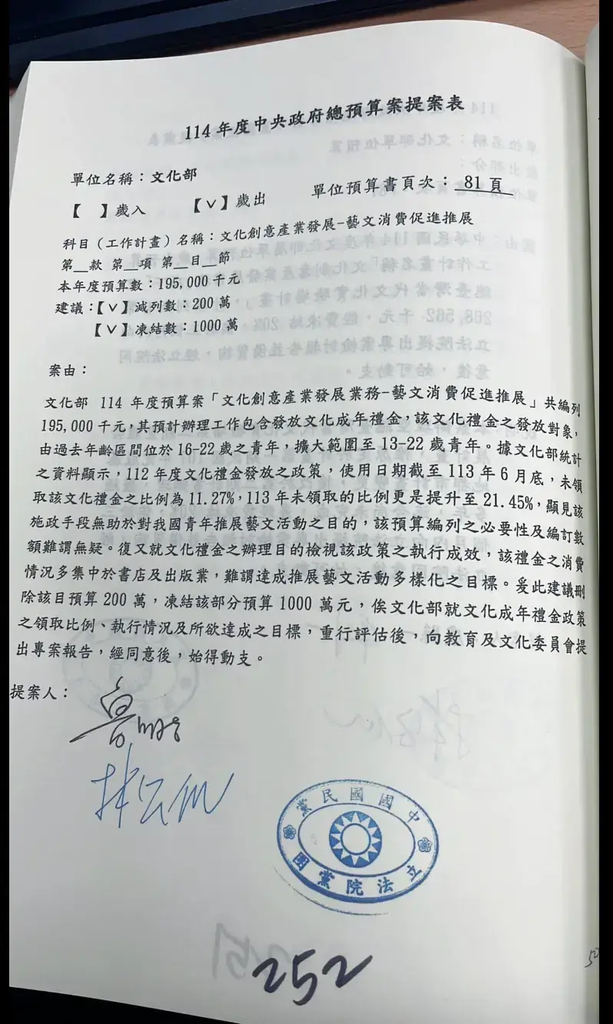 114 年度中央政府總預算案提案表
單位名稱：文化部
【　】歲入　【∨】歲出　單位預算書頁次：81 頁
科目（工作計畫）名稱：文化創意產業發展-藝文消費促進推展
第__款 第__項 第__目__節
本年度預算數：195,000 千元
建議：【∨】減列數：200 萬
【∨】凍結數：1000 萬
案由：
文化部 114 年度預算案「文化創意產業發展業務-藝文消費促進推展」共編列
195,000 千元，其預計辦理工作包含發放文化成年禮金，該文化禮金之發放對象，
由過去年齡區間位於 16-22 歲之青年，擴大範圍至 13-22 歲青年。據文化部統計
之資料顯示，112 年度文化禮金發放之政策，使用日期截至 113 年 6 月底，未領
取該文化禮金之比例為 11.27%，113 年未領取的比例更是提升至 21.45%，顯見該
施政手段無助於對我國青年推展藝文活動之目的，該預算編列之必要性及編訂數
額難謂無疑。復又就文化禮金之辦理目的檢視該政策之執行成效，該禮金之消費
情況多集中於書店及出版業，難謂達成推展藝文活動多樣化之目標。爰此建議刪
除該目預算 200 萬，凍結該部分預算 1000 萬元，俟文化部就文化成年禮金政策
之領取比例、執行情況及所欲達成之目標，重行評估後，向教育及文化委員會提
出專案報告，經同意後，始得動支。
提案人：
中國國民黨
立法院黨團
252